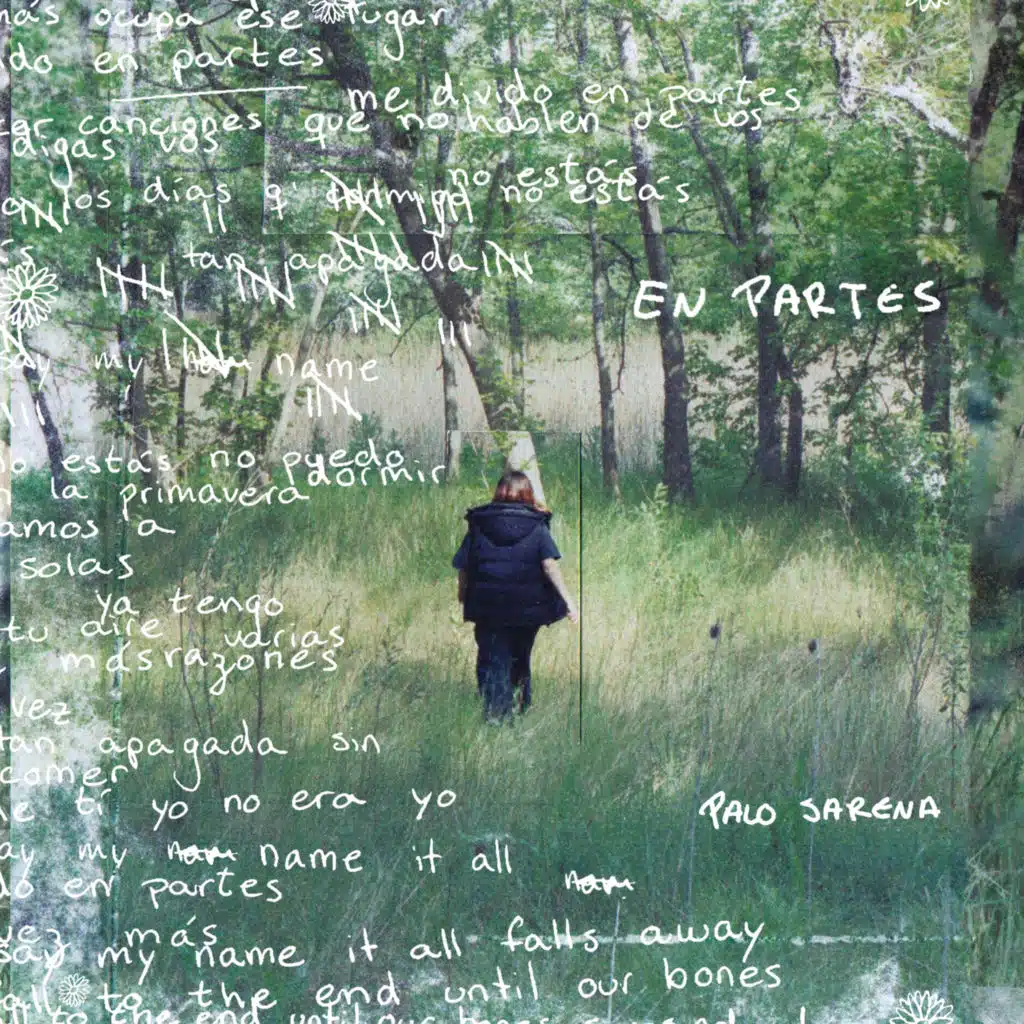 más ocupa ese lugar
do en partes
me divido en partes
canciones que no hablen de vos
digas vos
no estás
los días q' dormida no estás
tan apagada
EN PARTES
say my name
estás no puedo
dormir
la primavera
amos a
solas
ya tengo
tu aire varias
más razones
vez
tan apagada sin
comer
ti yo no era yo
PALO SARENA
my name it all
do en partes
vez más
say my name it all falls away
fall to the end until our bones
to the end until our bones